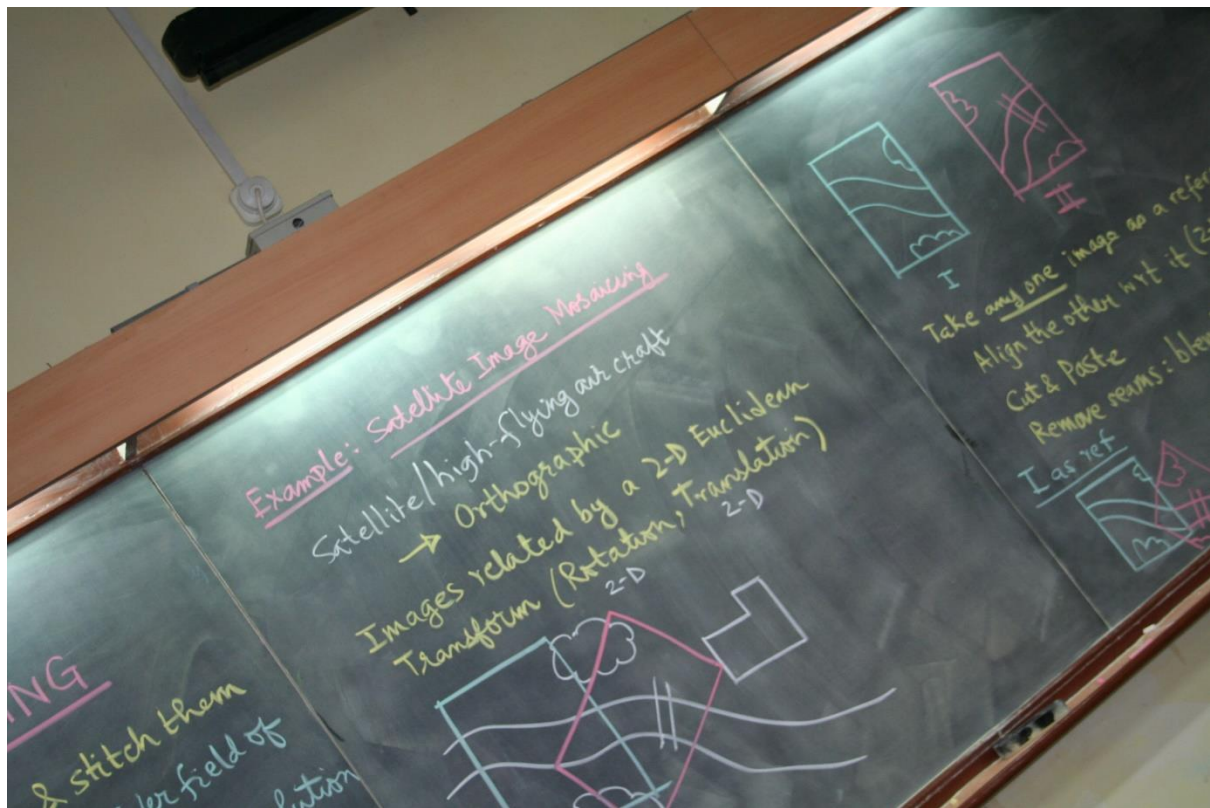 ING
& stitch them
field of
Example: Satellite Image Mosaicing
Satellite/high-flying air craft
→ Orthographic
Images related by a 2-D Euclidean
Transform (Rotation, Translation)
2-D 2-D
I
II
Take any one image as a refer
Align the other w.r.t it (2-
Cut & Paste
Remove seams: blen
I as ref